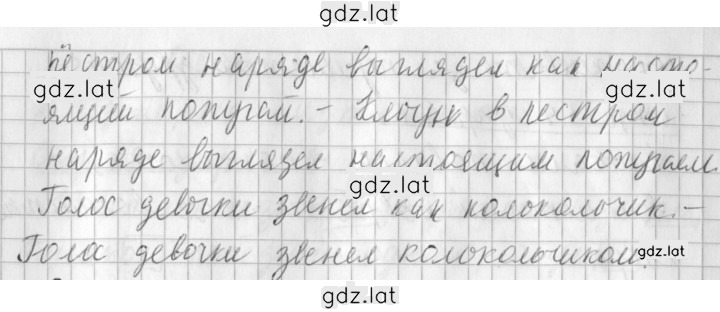 gdz.lat
пёстром наряде выглядел как насто-
gdz.lat
ящий попугай. - Клоун в пестром
gdz.lat
наряде выглядел настоящим попугаем.
gdz.lat
Голос девочки звенел как колокольчик. -
Голос девочки звенел колокольчиком.
gdz.lat
gdz.lat